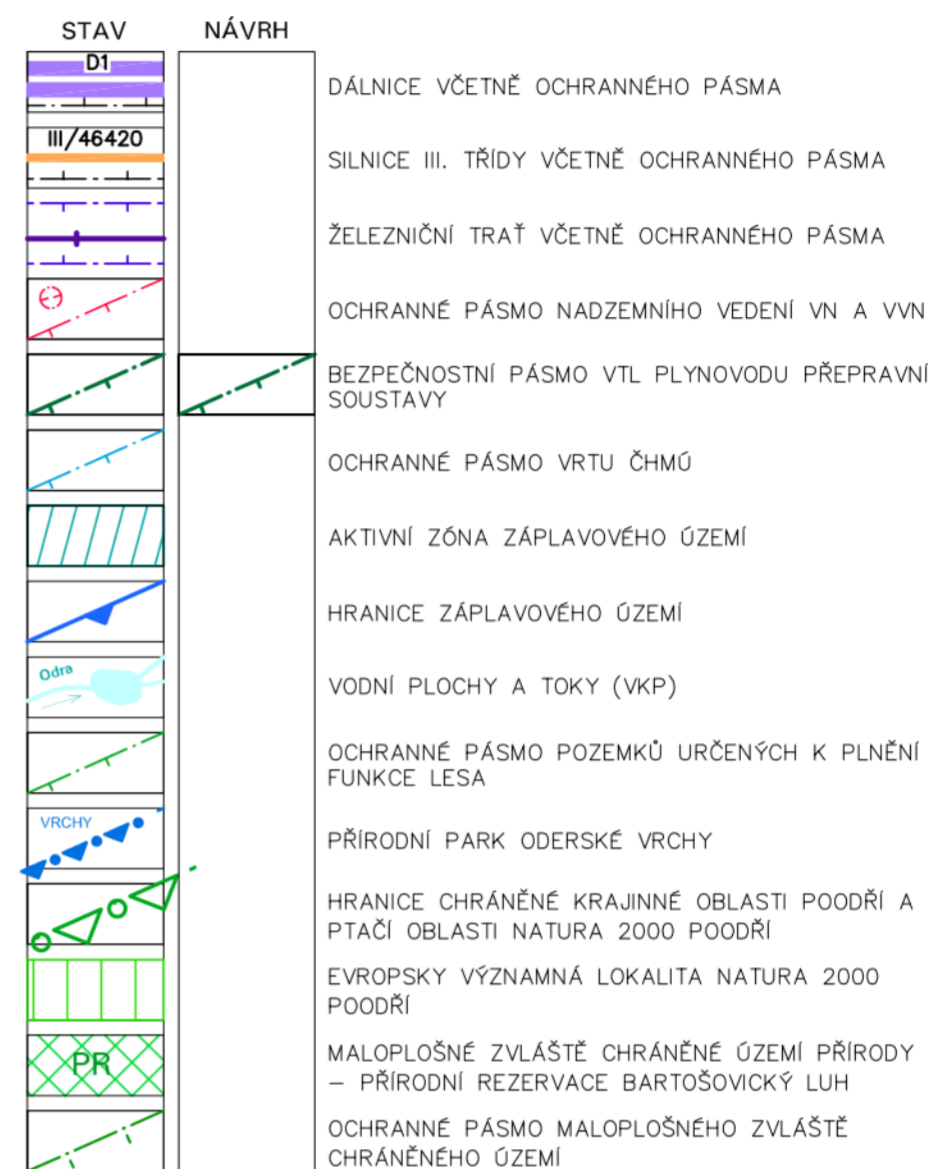 STAV NÁVRH
D1
DÁLNICE VČETNĚ OCHRANNÉHO PÁSMA
III/46420
SILNICE III. TŘÍDY VČETNĚ OCHRANNÉHO PÁSMA
ŽELEZNIČNÍ TRAŤ VČETNĚ OCHRANNÉHO PÁSMA
OCHRANNÉ PÁSMO NADZEMNÍHO VEDENÍ VN A VVN
BEZPEČNOSTNÍ PÁSMO VTL PLYNOVODU PŘEPRAVNÍ
SOUSTAVY
OCHRANNÉ PÁSMO VRTU ČHMÚ
AKTIVNÍ ZÓNA ZÁPLAVOVÉHO ÚZEMÍ
HRANICE ZÁPLAVOVÉHO ÚZEMÍ
Odra
VODNÍ PLOCHY A TOKY (VKP)
OCHRANNÉ PÁSMO POZEMKŮ URČENÝCH K PLNĚNÍ
FUNKCE LESA
VRCHY
PŘÍRODNÍ PARK ODERSKÉ VRCHY
HRANICE CHRÁNĚNÉ KRAJINNÉ OBLASTI POODŘÍ A
PTAČÍ OBLASTI NATURA 2000 POODŘÍ
EVROPSKY VÝZNAMNÁ LOKALITA NATURA 2000
POODŘÍ
PR
MALOPLOŠNÉ ZVLÁŠTĚ CHRÁNĚNÉ ÚZEMÍ PŘÍRODY
– PŘÍRODNÍ REZERVACE BARTOŠOVICKÝ LUH
OCHRANNÉ PÁSMO MALOPLOŠNÉHO ZVLÁŠTĚ
CHRÁNĚNÉHO ÚZEMÍ